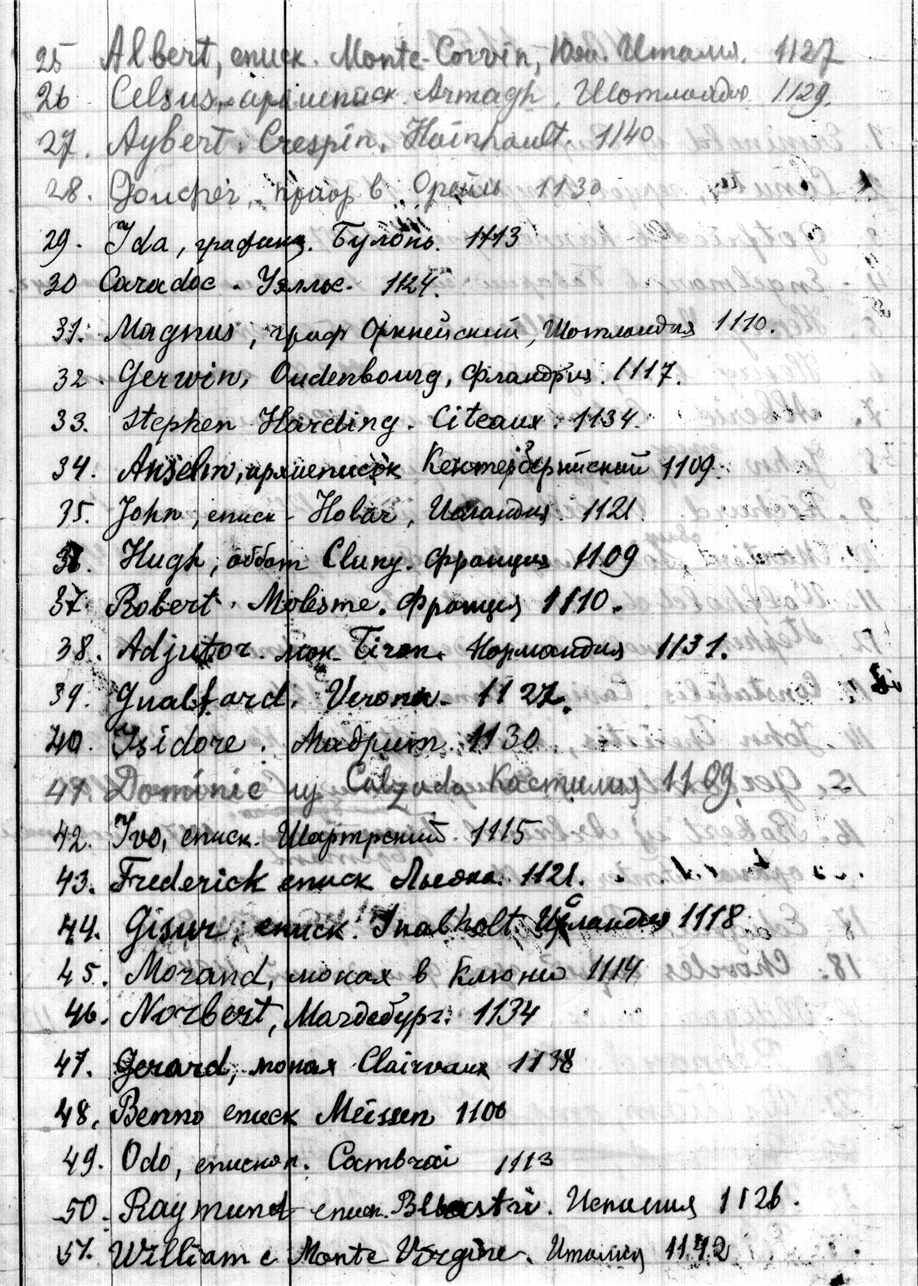 25 Albert, еписк. Monte-Corvin, Юж. Италия. 1127
26 Celsus, архиеписк. Armagh. Шотландия 1129.
27. Aybert. Crespin. Hainhault. 1140
28. приор в 1130
29. Ida, графиня. Булонь. 1113
30 Caradoc. Уэльс. 1124.
31. Magnus, граф Оркнейский, Шотландия 1110.
32. Gerwin, Oudenbourg, Фландрия. 1117.
33. Stephen Harding. Citeaux. 1134.
34. Anselm, архиепископ 1109.
35. John, еписк. Holar, Исландия. 1121.
36 Hugh, аббат Cluny. Франция 1109
37. Robert. Molesme. Франция 1110.
38. Adjutor. мон. Tiron. Нормандия 1131.
39. Gualfard. Verona. 1127.
40. Isidore. Мадрит. 1130
41. Dominic из Calzada Кастилия 1109.
42. Ivo, еписк. Шартрский. 1115
43. Frederick еписк Льежа. 1121.
44. Gisur, еписк. 1118
45. Morand, монах в Клюни 1114
46. Norbert, Магдебург. 1134
47. Gerard, монах Clairvaux 1138
48. Benno еписк Meissen 1106
49. Odo, епископ. Cambrai 1113
50. Raymund еписк. Испания 1126.
51. William с Monte Vergine. Италия 1142